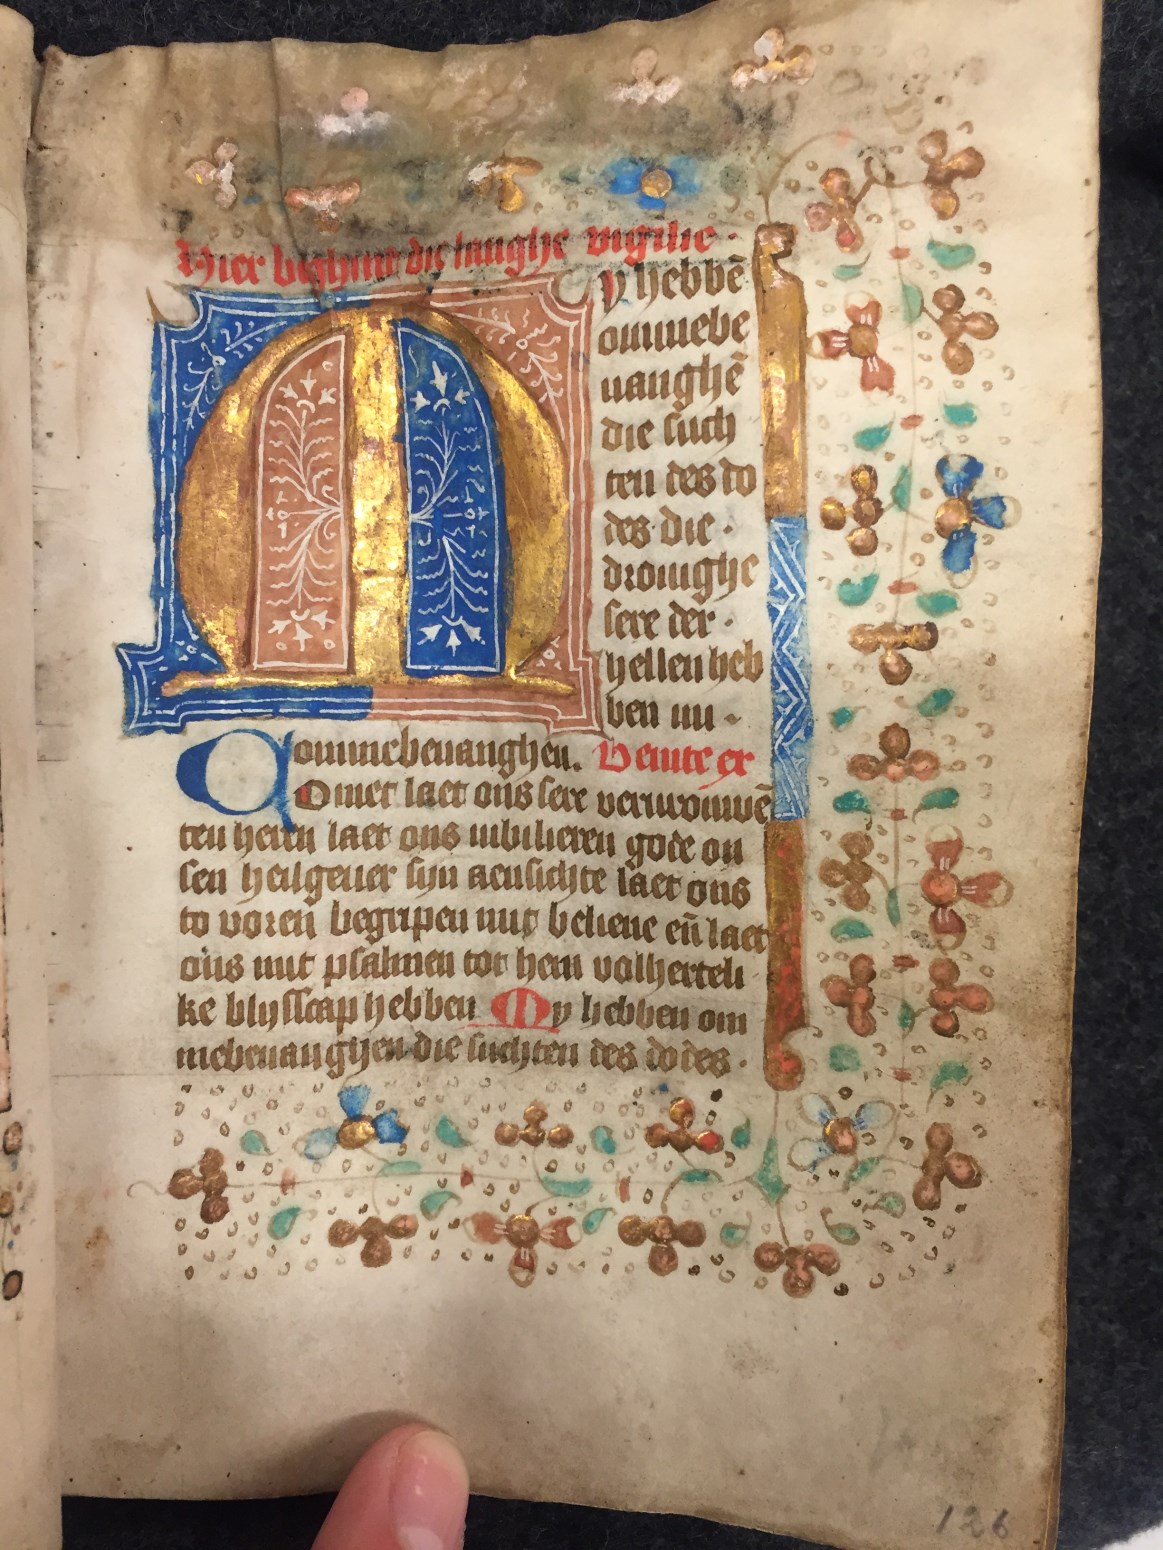 Hier beghint die langhe vigilie
My hebbē
ommebe
uanghē
die such
ten des do
des die
drouighe
sere der
hellen heb
ben mi
ommebeuanghen. Venite ex
Comet laet ons sere verurouwē
ten heren laet ons iubilieren gode on
sen heilgeuer sijn aensichte laet ons
to voren begripen mit beliene eñ laet
ons mit psalmen tot hem volherteli
ke blysscap hebben My hebben om
mebeuanghen die suchten des dodes
126